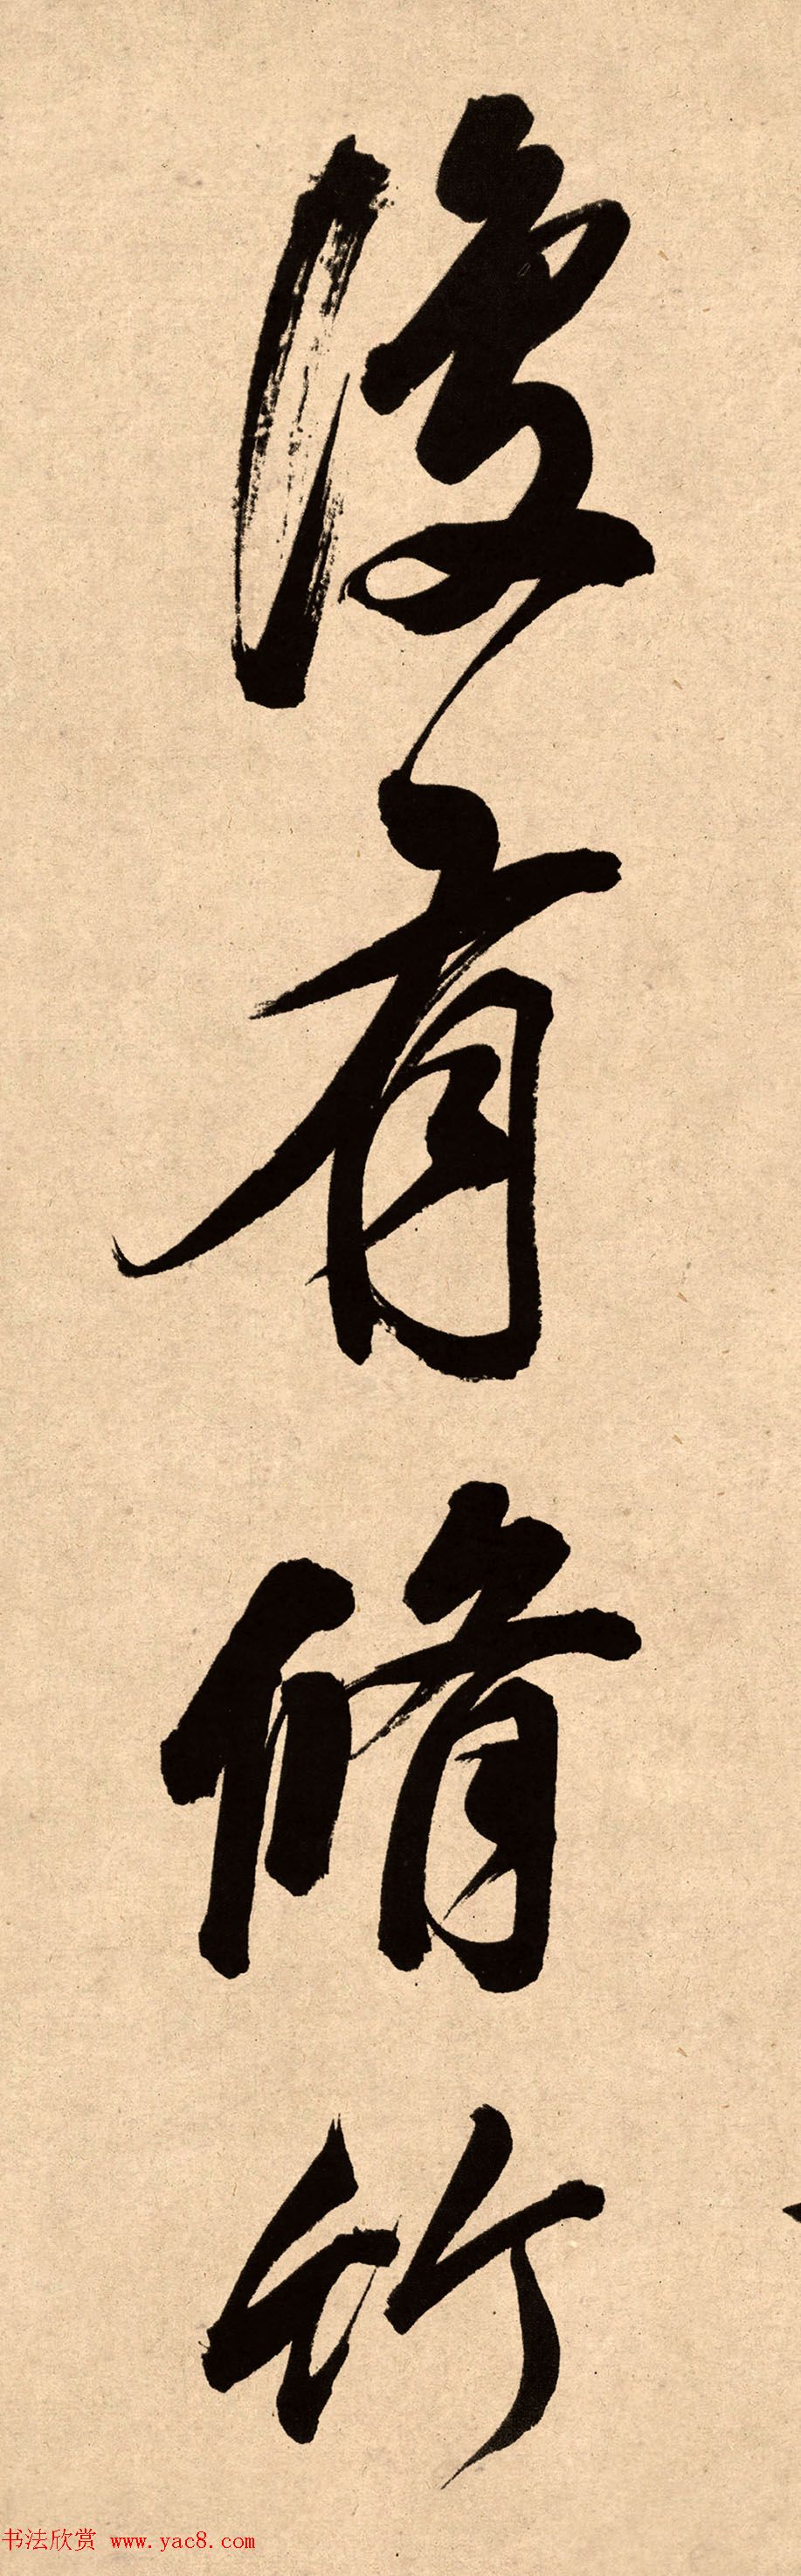 後有脩竹
书法欣赏 www.yac8.com